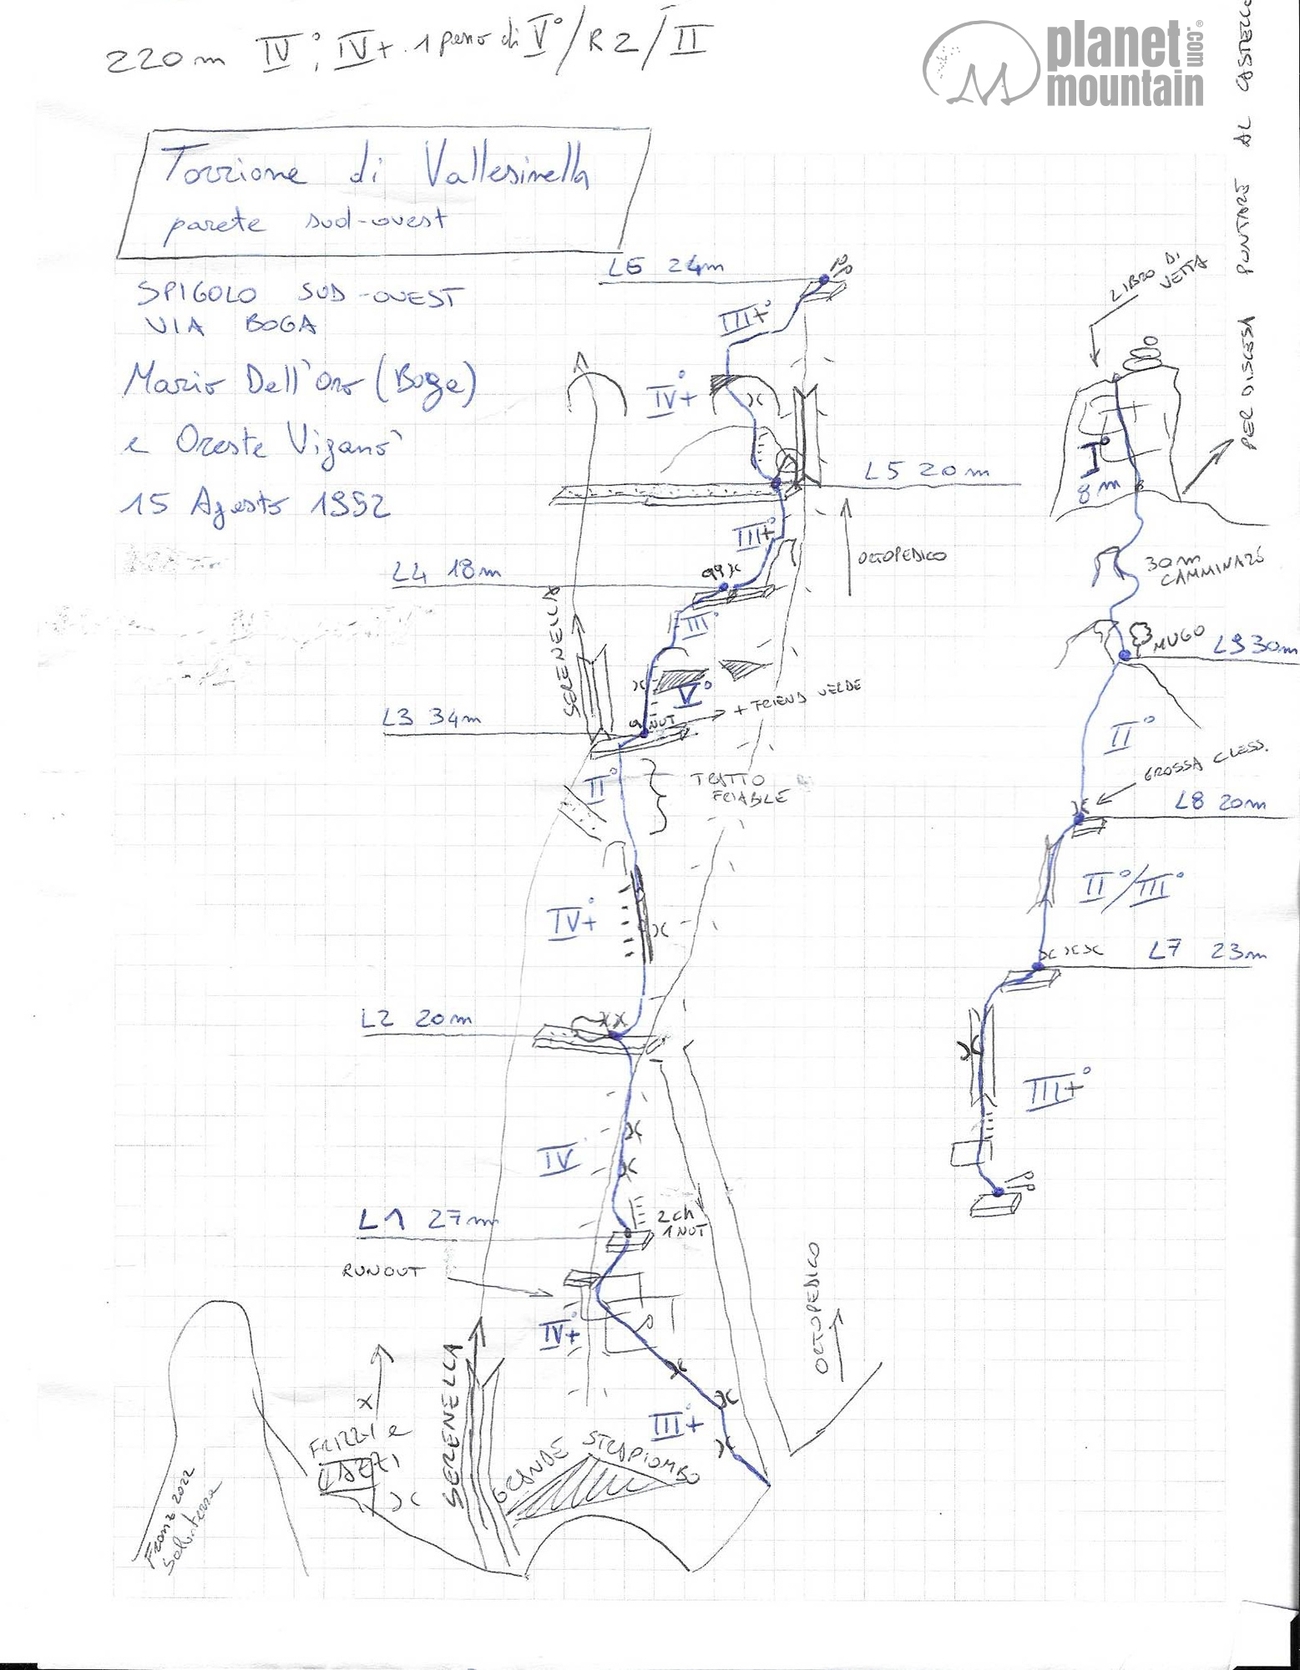 220m IV°; IV+ 1 passo di V°/R2/II
planet
mountain
.com
Torrione di Vallesinella
parete sud-ovest
SPIGOLO SUD-OVEST
VIA BOGA
Mario Dell'Oro (Boga)
e Oreste Vizanò
15 Agosto 1952
L6 24m
III+°
IV+°
L5 20m
III+°
ORTOPEDICO
L4 18m
III°
SERENELLA
V°
NUT
+ FRIEND VERDE
L3 34m
II°
TRATTO
FRIABLE
IV+°
L2 20m
IV
L1 27m
2ch
1 NUT
RUNOUT
IV+°
III+°
ORTOPEDICO
SERENELLA
GRANDE STRAPIOMBO
FRIZZI e
Franz 2022
PER DISCESA PUNTARE AL CASTELLO
LIBRO DI
VETTA
I°
8m
30m
CAMMINARE
MUGO
L9 30m
II°
GROSSA CLESS.
L8 20m
II°/III°
L7 23m
III+°